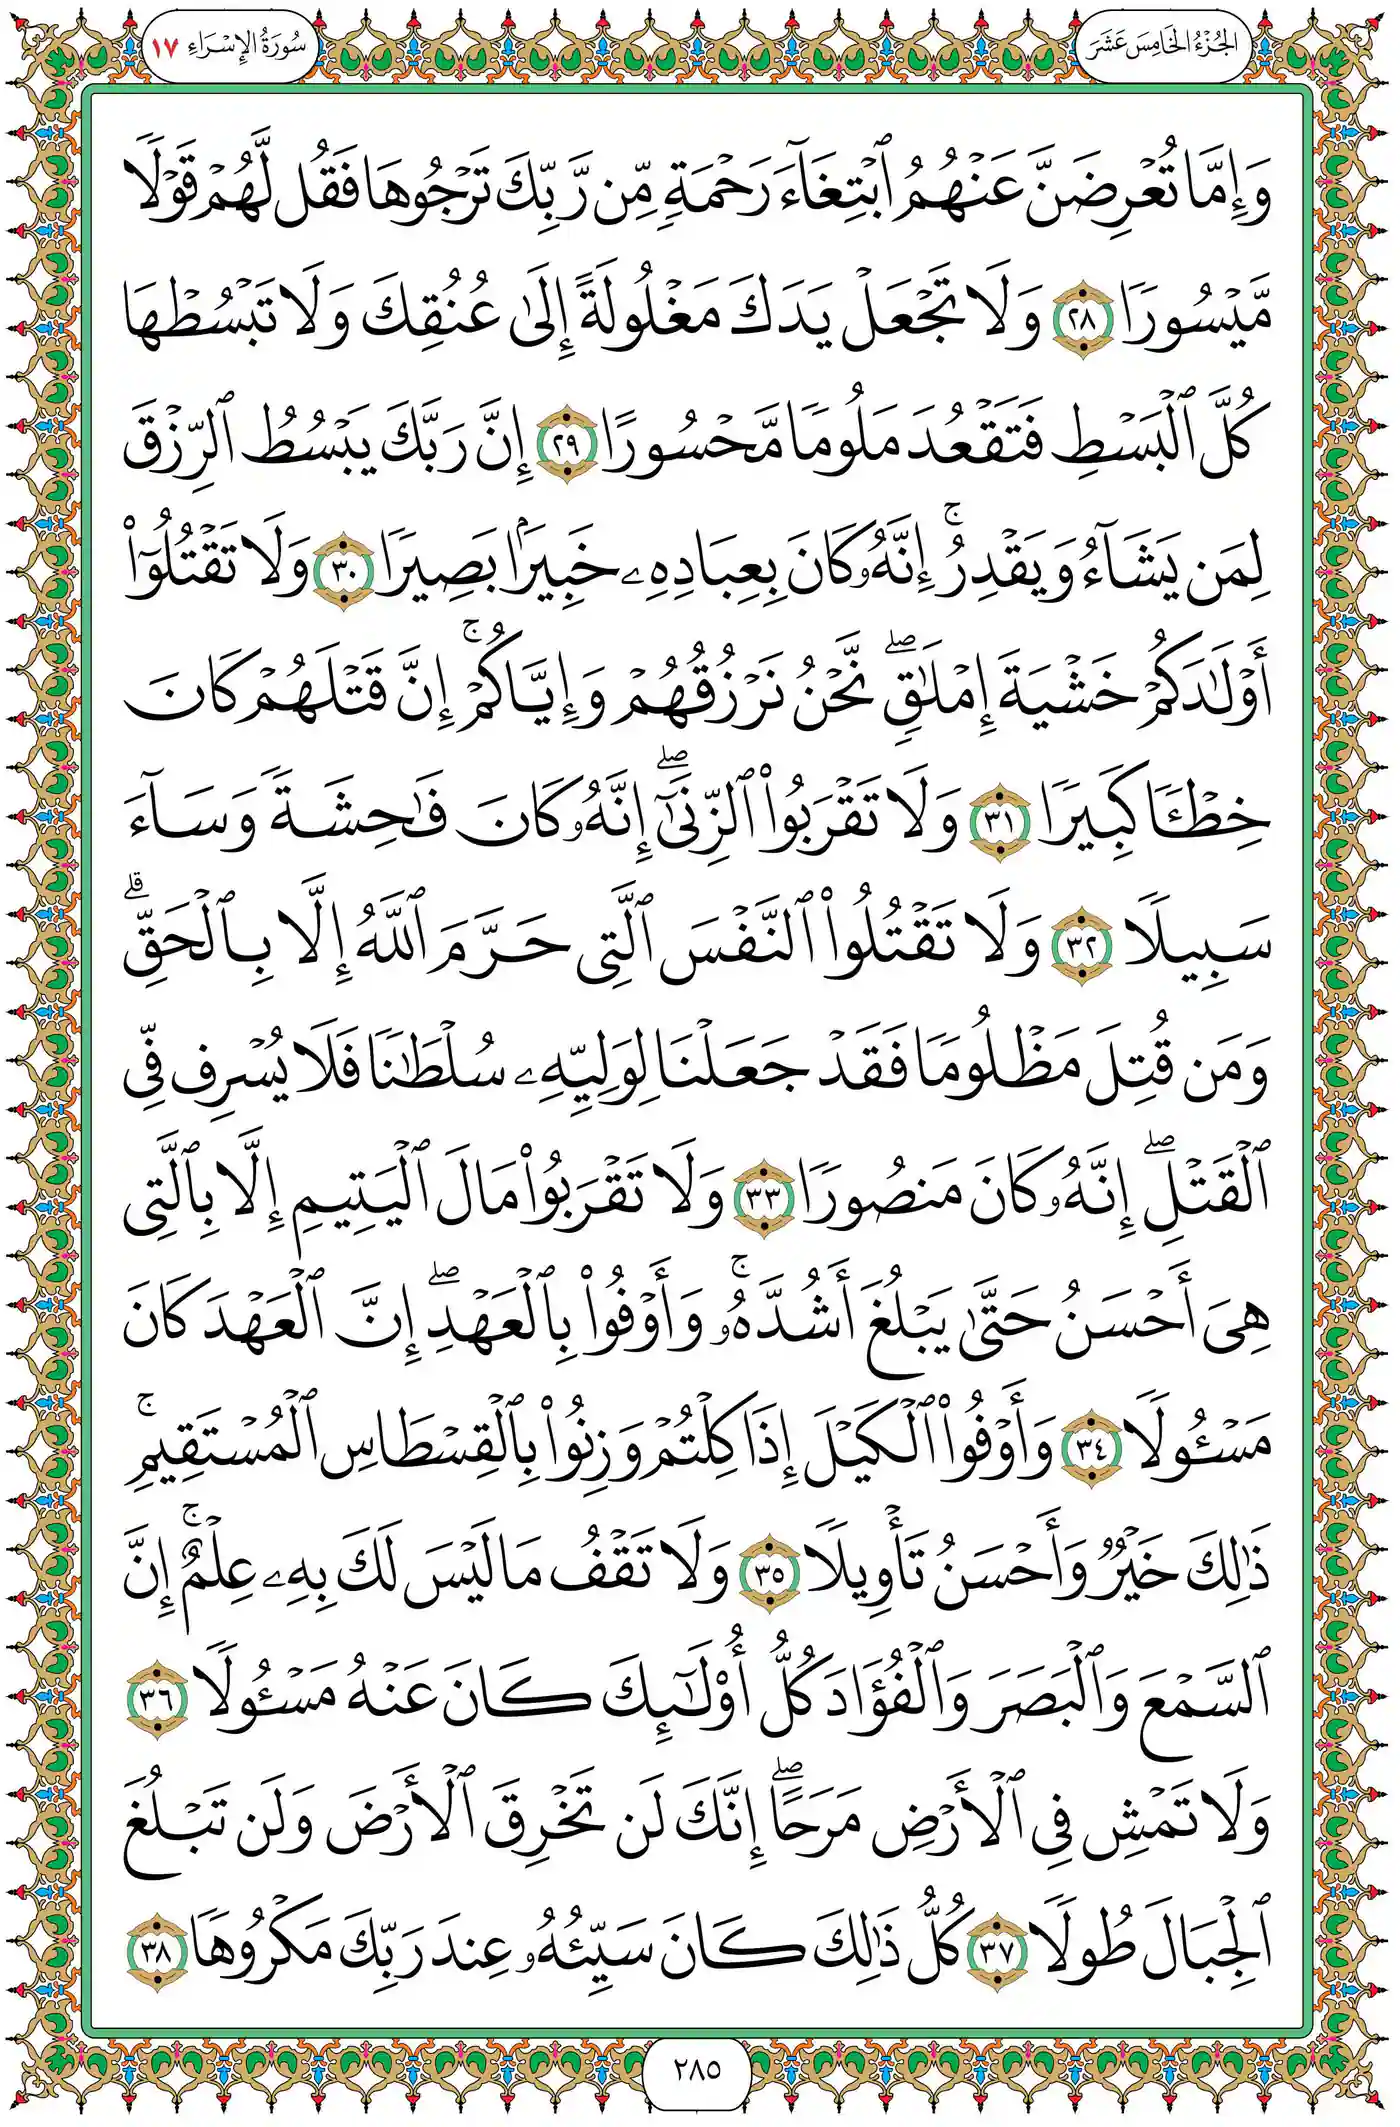 الجُزْءُ الخَامِسَ عَشَرَ
سُورَةُ الإِسْرَاءِ ١٧
وَإِمَّا تُعْرِضَنَّ عَنْهُمُ ٱبْتِغَآءَ رَحْمَةٍۢ مِّن رَّبِّكَ تَرْجُوهَا فَقُل لَّهُمْ قَوْلًۭا
مَّيْسُورًۭا ٢٨ وَلَا تَجْعَلْ يَدَكَ مَغْلُولَةً إِلَىٰ عُنُقِكَ وَلَا تَبْسُطْهَا
كُلَّ ٱلْبَسْطِ فَتَقْعُدَ مَلُومًۭا مَّحْسُورًا ٢٩ إِنَّ رَبَّكَ يَبْسُطُ ٱلرِّزْقَ
لِمَن يَشَآءُ وَيَقْدِرُ ۚ إِنَّهُۥ كَانَ بِعِبَادِهِۦ خَبِيرًۢا بَصِيرًۭا ٣٠ وَلَا تَقْتُلُوٓا۟
أَوْلَٰدَكُمْ خَشْيَةَ إِمْلَٰقٍۢ ۖ نَّحْنُ نَرْزُقُهُمْ وَإِيَّاكُمْ ۚ إِنَّ قَتْلَهُمْ كَانَ
خِطْـًۭٔا كَبِيرًۭا ٣١ وَلَا تَقْرَبُوا۟ ٱلزِّنَىٰٓ ۖ إِنَّهُۥ كَانَ فَٰحِشَةًۭ وَسَآءَ
سَبِيلًۭا ٣٢ وَلَا تَقْتُلُوا۟ ٱلنَّفْسَ ٱلَّتِى حَرَّمَ ٱللَّهُ إِلَّا بِٱلْحَقِّ ۗ
وَمَن قُتِلَ مَظْلُومًۭا فَقَدْ جَعَلْنَا لِوَلِيِّهِۦ سُلْطَٰنًۭا فَلَا يُسْرِف فِّى
ٱلْقَتْلِ ۖ إِنَّهُۥ كَانَ مَنصُورًۭا ٣٣ وَلَا تَقْرَبُوا۟ مَالَ ٱلْيَتِيمِ إِلَّا بِٱلَّتِى
هِىَ أَحْسَنُ حَتَّىٰ يَبْلُغَ أَشُدَّهُۥ ۚ وَأَوْفُوا۟ بِٱلْعَهْدِ ۖ إِنَّ ٱلْعَهْدَ كَانَ
مَسْـُٔولًۭا ٣٤ وَأَوْفُوا۟ ٱلْكَيْلَ إِذَا كِلْتُمْ وَزِنُوا۟ بِٱلْقِسْطَاسِ ٱلْمُسْتَقِيمِ ۚ
ذَٰلِكَ خَيْرٌۭ وَأَحْسَنُ تَأْوِيلًۭا ٣٥ وَلَا تَقْفُ مَا لَيْسَ لَكَ بِهِۦ عِلْمٌ ۚ إِنَّ
ٱلسَّمْعَ وَٱلْبَصَرَ وَٱلْفُؤَادَ كُلُّ أُو۟لَٰٓئِكَ كَانَ عَنْهُ مَسْـُٔولًۭا ٣٦
وَلَا تَمْشِ فِى ٱلْأَرْضِ مَرَحًا ۖ إِنَّكَ لَن تَخْرِقَ ٱلْأَرْضَ وَلَن تَبْلُغَ
ٱلْجِبَالَ طُولًۭا ٣٧ كُلُّ ذَٰلِكَ كَانَ سَيِّئُهُۥ عِندَ رَبِّكَ مَكْرُوهًۭا ٣٨
٢٨٥